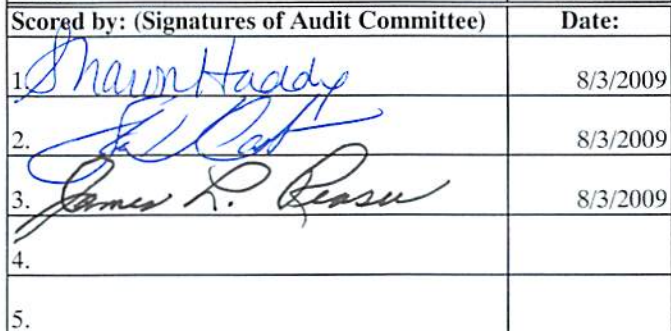 Scored by: (Signatures of Audit Committee) Date:
1. Sharon Haddy 8/3/2009
2. 8/3/2009
3. James L. 8/3/2009
4.
5.